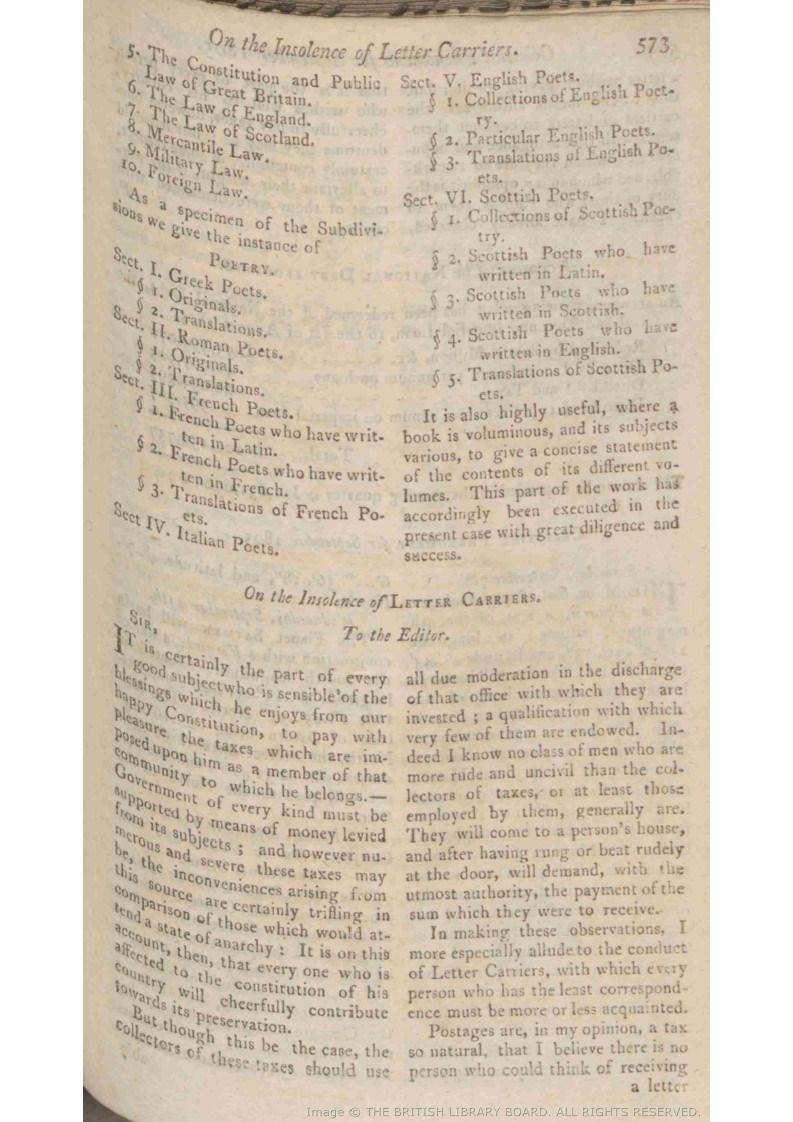 On the Insolence of Letter Carriers. 573
5. The Constitution and Public
Law of Great Britain.
6. The Law of England.
7. The Law of Scotland.
8. Mercantile Law.
9. Military Law.
10. Foreign Law.
As a specimen of the Subdivi-
sions we give the instance of
POETRY.
Sect. I. Greek Poets.
§ 1. Originals.
§ 2. Translations.
Sect. II. Roman Poets.
§ 1. Originals.
§ 2. Translations.
Sect. III. French Poets.
§ 1. French Poets who have writ-
ten in Latin.
§ 2. French Poets who have writ-
ten in French.
§ 3. Translations of French Po-
ets.
Sect IV. Italian Poets.
Sect. V. English Poets.
§ 1. Collections of English Poet-
ry.
§ 2. Particular English Poets.
§ 3. Translations of English Po-
ets.
Sect. VI. Scottish Poets.
§ 1. Collections of Scottish Poe-
try.
§ 2. Scottish Poets who have
written in Latin.
§ 3. Scottish Poets who have
written in Scottish.
§ 4. Scottish Poets who have
written in English.
§ 5. Translations of Scottish Po-
ets.
It is also highly useful, where a
book is voluminous, and its subjects
various, to give a concise statement
of the contents of its different vo-
lumes. This part of the work has
accordingly been executed in the
present case with great diligence and
success.
On the Insolence of LETTER CARRIERS.
To the Editor.
SIR,
IT is certainly the part of every
good subject who is sensible of the
blessings which he enjoys from our
happy Constitution, to pay with
pleasure the taxes which are im-
posed upon him as a member of that
community to which he belongs.—
Government of every kind must be
supported by means of money levied
from its subjects; and however nu-
merous and severe these taxes may
be, the inconveniences arising from
this source are certainly trifling in
comparison of those which would at-
tend a state of anarchy: It is on this
account, then, that every one who is
affected to the constitution of his
country will cheerfully contribute
towards its preservation.
But though this be the case, the
collectors of these taxes should use
all due moderation in the discharge
of that office with which they are
invested; a qualification with which
very few of them are endowed. In-
deed I know no class of men who are
more rude and uncivil than the col-
lectors of taxes, or at least those
employed by them, generally are.
They will come to a person's house,
and after having rung or beat rudely
at the door, will demand, with the
utmost authority, the payment of the
sum which they were to receive.
In making these observations, I
more especially allude to the conduct
of Letter Carriers, with which every
person who has the least correspond-
ence must be more or less acquainted.
Postages are, in my opinion, a tax
so natural, that I believe there is no
person who could think of receiving
a letter
Image © THE BRITISH LIBRARY BOARD. ALL RIGHTS RESERVED.